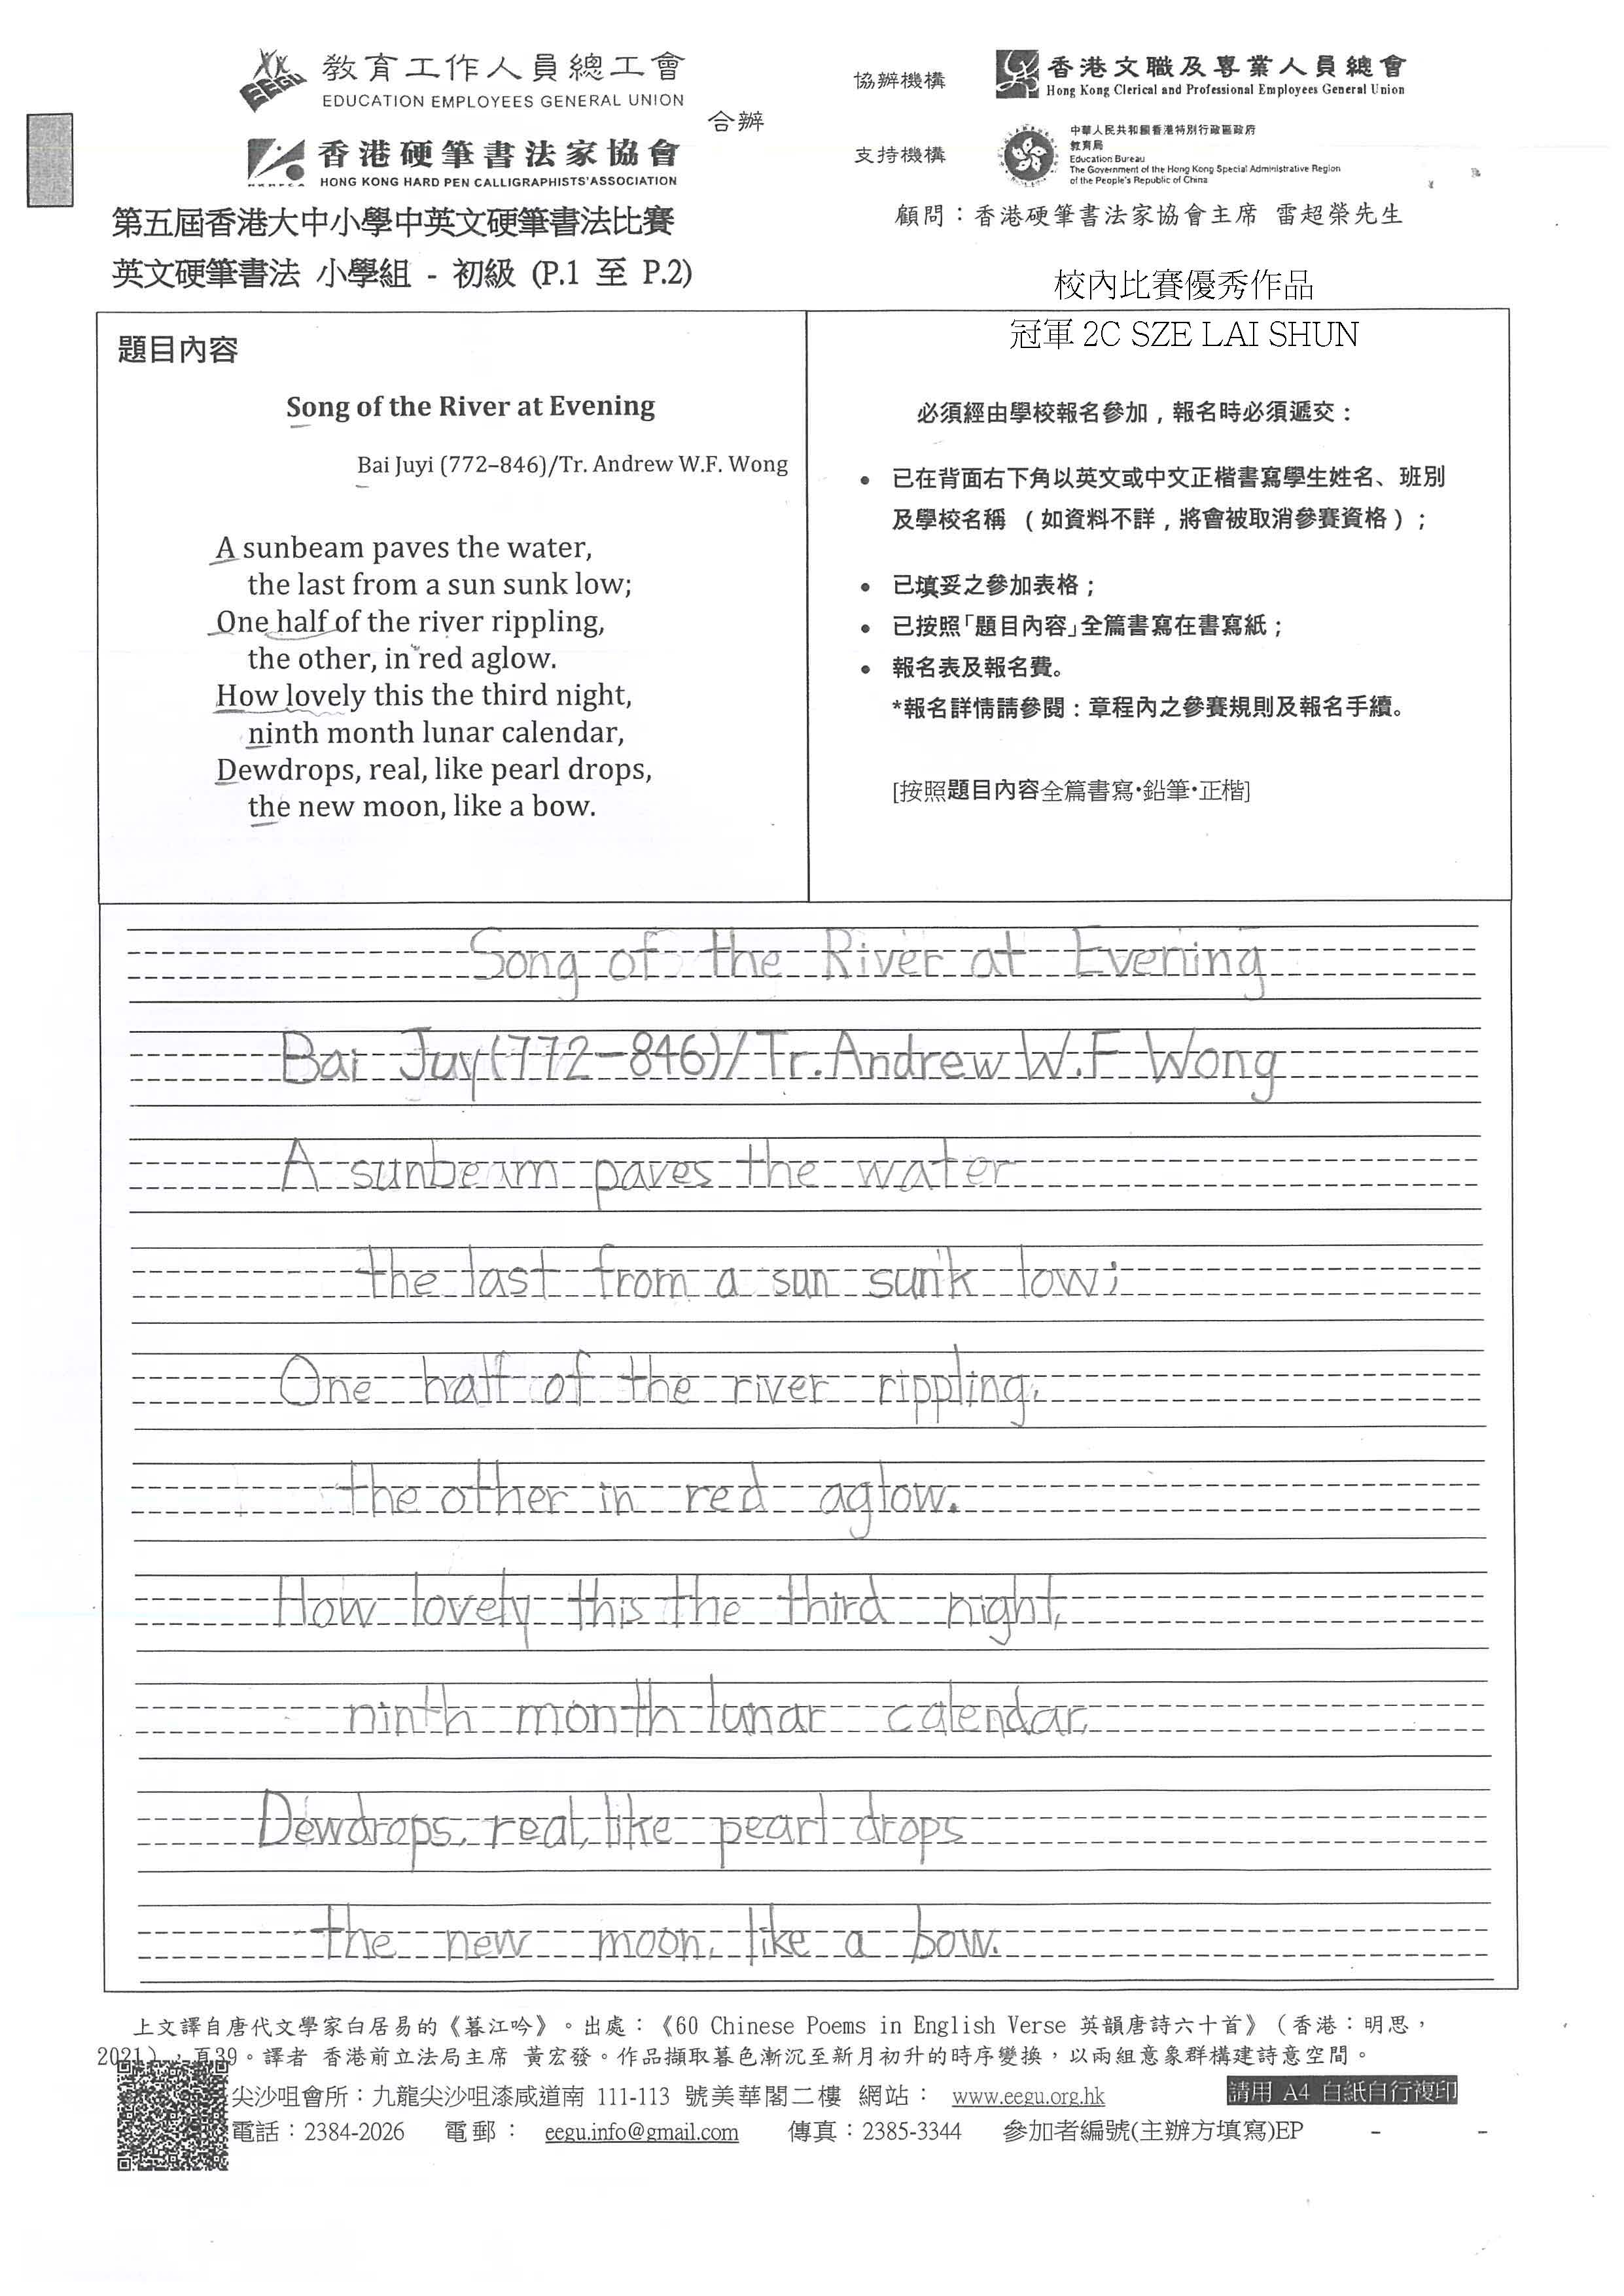 教育工作人員總工會
EDUCATION EMPLOYEES GENERAL UNION
合辦
香港硬筆書法家協會
HONG KONG HARD PEN CALLIGRAPHISTS'ASSOCIATION
協辦機構
香港文職及專業人員總會
Hong Kong Clerical and Professional Employees General Union
支持機構
中華人民共和國香港特別行政區政府
教育局
Education Bureau
The Government of the Hong Kong Special Administrative Region
of the People's Republic of China
第五屆香港大中小學中英文硬筆書法比賽
顧問：香港硬筆書法家協會主席 雷超榮先生
英文硬筆書法 小學組 - 初級 (P.1 至 P.2)
校內比賽優秀作品
冠軍 2C SZE LAI SHUN
題目內容
Song of the River at Evening
Bai Juyi (772–846)/Tr. Andrew W.F. Wong
A sunbeam paves the water,
the last from a sun sunk low;
One half of the river rippling,
the other, in red aglow.
How lovely this the third night,
ninth month lunar calendar,
Dewdrops, real, like pearl drops,
the new moon, like a bow.
必須經由學校報名參加，報名時必須遞交：
• 已在背面右下角以英文或中文正楷書寫學生姓名、班別
及學校名稱 （如資料不詳，將會被取消參賽資格）；
• 已填妥之參加表格；
• 已按照「題目內容」全篇書寫在書寫紙；
• 報名表及報名費。
*報名詳情請參閱：章程內之參賽規則及報名手續。
[按照題目內容全篇書寫‧鉛筆‧正楷]
Song of the River at Evening
Bai Juy(772-846)/Tr.Andrew W.F Wong
A sunbeam paves the water
the last from a sun sunk low;
One half of the river rippling,
the other in red aglow.
How lovely this the third night,
ninth month lunar calendar,
Dewdrops, real, like pearl drops
the new moon, like a bow.
上文譯自唐代文學家白居易的《暮江吟》。出處：《60 Chinese Poems in English Verse 英韻唐詩六十首》（香港：明思，
2021），頁39。譯者 香港前立法局主席 黃宏發。作品擷取暮色漸沉至新月初升的時序變換，以兩組意象群構建詩意空間。
尖沙咀會所：九龍尖沙咀漆咸道南 111-113 號美華閣二樓 網站： www.eegu.org.hk
請用 A4 白紙自行複印
電話：2384-2026 電郵： eegu.info@gmail.com 傳真：2385-3344 參加者編號(主辦方填寫)EP - -